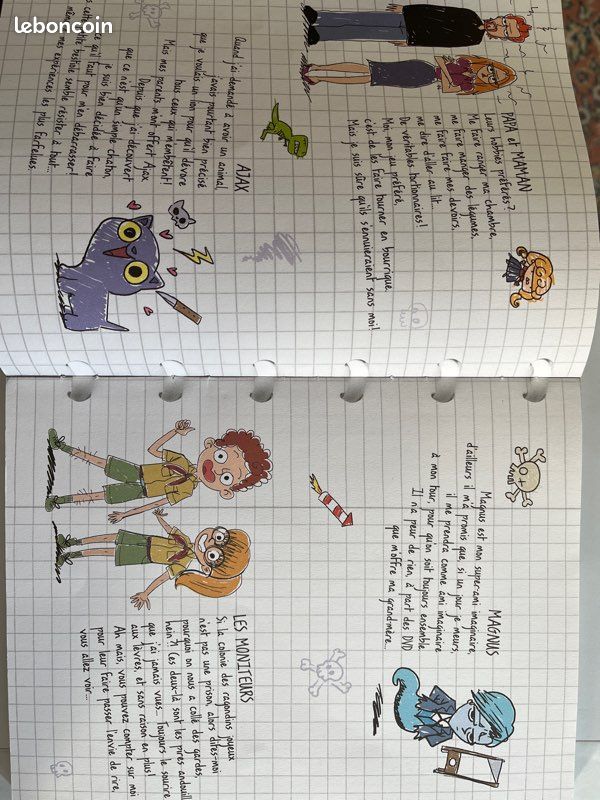 leboncoin
PAPA et MAMAN
Leurs hobbies préférés ?
Me faire ranger ma chambre,
me faire manger des légumes,
me faire faire mes devoirs,
me dire d'aller au lit...
De véritables tortionnaires !
Moi, mon jeu préféré,
c'est de les faire tourner en bourrique.
Mais je suis sûre qu'ils s'ennuieraient sans moi !
AJAX
Quand j'ai demandé à avoir un animal,
j'avais pourtant bien précisé
que je voulais un lion pour qu'il dévore
tous ceux qui m'embêtent !
Mais mes parents m'ont offert Ajax.
Depuis que j'ai découvert
que ce n'est qu'un simple chaton,
je suis bien décidée à faire
qu'il faut pour m'en débarrasser !
cette bestiole semble résister à tout...
même mes expériences les plus farfelues.
MAGNUS
Magnus est mon super-ami imaginaire,
d'ailleurs il m'a promis que, si un jour je meurs,
il me prendra comme ami imaginaire
à mon tour, pour qu'on soit toujours ensemble.
Il n'a peur de rien, à part des DVD
que m'offre ma grand-mère.
LES MONITEURS
Si la colonie des ragondins joyeux
n'est pas une prison, alors dites-moi
pourquoi on nous a collé des gardes,
hein ?! Ces deux-là sont les pires andouill
que j'ai jamais vues... Toujours le sourire
aux lèvres, et sans raison en plus !
Ah mais, vous pouvez compter sur moi
pour leur faire passer l'envie de rire,
vous allez voir...